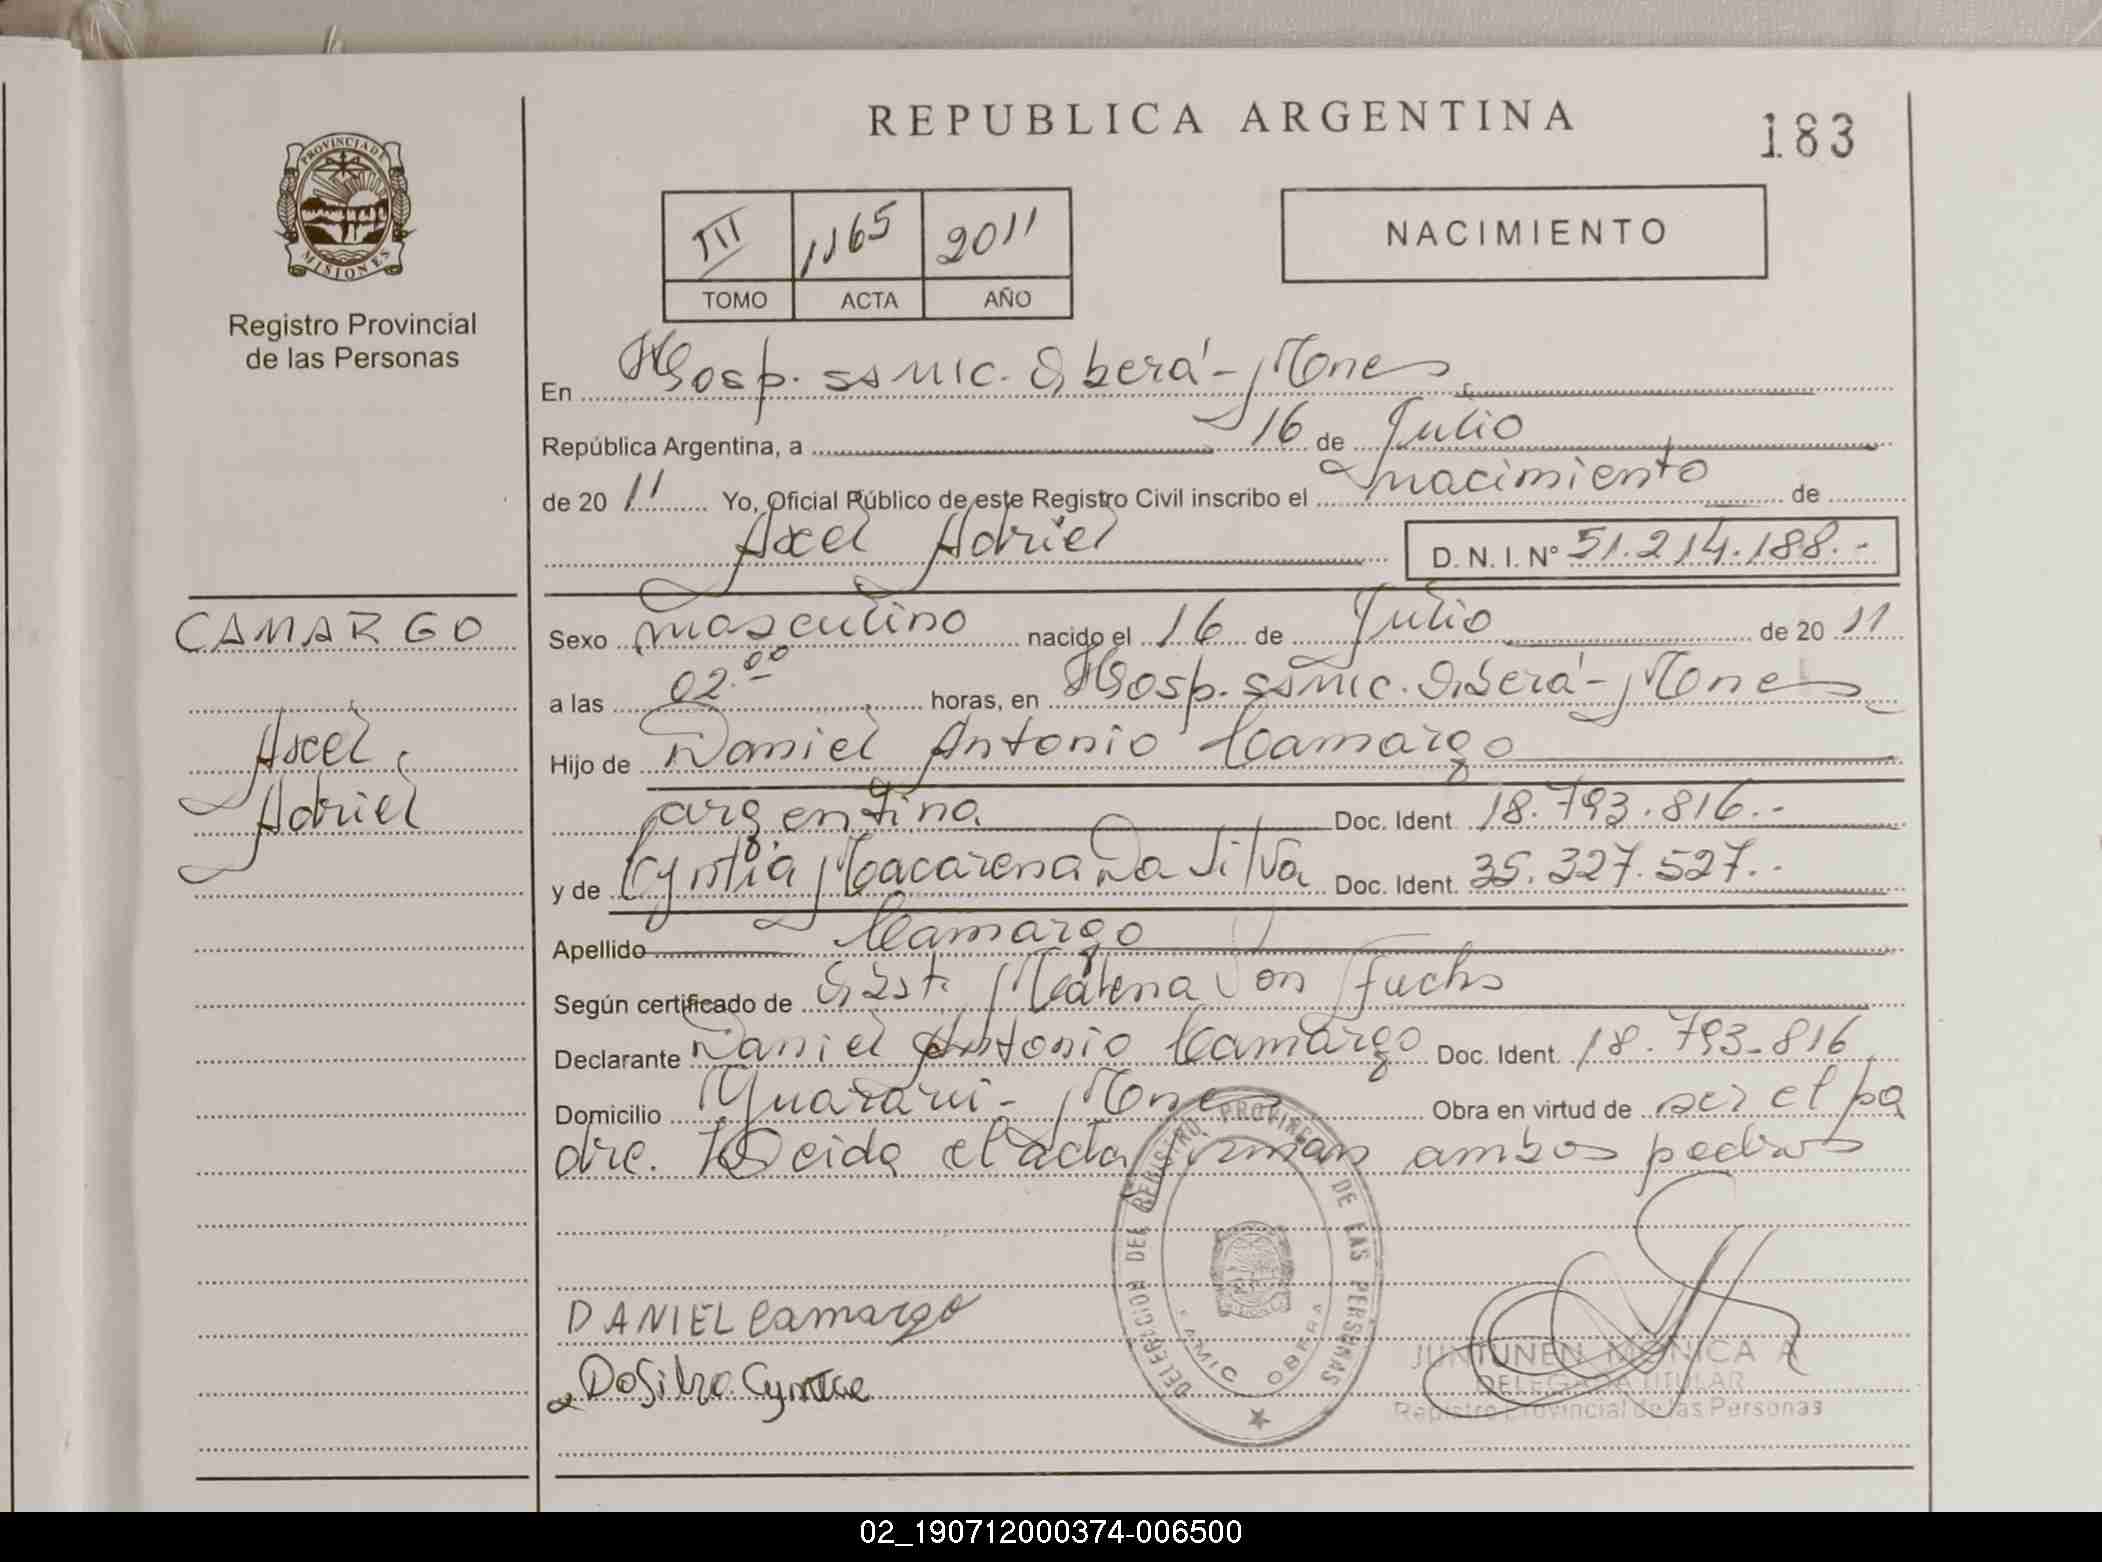 REPUBLICA ARGENTINA
183
PROVINCIA DE
MISIONES
Registro Provincial
de las Personas
III 1165 2011
TOMO ACTA AÑO
NACIMIENTO
En Hosp. SAMIC. Oberá - Mnes
República Argentina, a 16 de Julio
de 20 11 Yo, Oficial Público de este Registro Civil inscribo el nacimiento de
Axel Adriel D. N. I. N° 51.214.188.-
CAMARGO
Axel
Adriel
Sexo masculino nacido el 16 de Julio de 20 11
a las 02.00 horas, en Hosp. SAMIC. Oberá - Mnes
Hijo de Daniel Antonio Camargo
argentina Doc. Ident. 18.793.816.-
y de Cyntia Macarena Da Silva Doc. Ident. 35.327.527.-
Apellido Camargo
Según certificado de Obst. Malena Von Fuchs
Declarante Daniel Antonio Camargo Doc. Ident. 18.793.816
Domicilio Guaraní - Mnes Obra en virtud de ser el pa
dre. Leida el acta firman ambos padres
DELEGACION DEL REGISTRO PROVINCIAL DE LAS PERSONAS
SAMIC OBERA
DANIEL Camargo
Da Silva Cyntia
JUNTUNEN MONICA A
DELEGADA TITULAR
Registro Provincial de las Personas
02_190712000374-006500